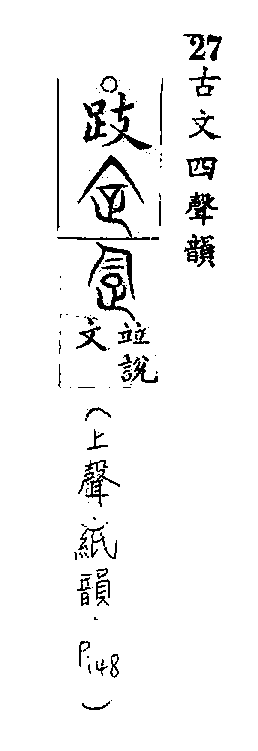 27古文四聲韻
跂
竝說
文
(上聲.紙韻.P.148)